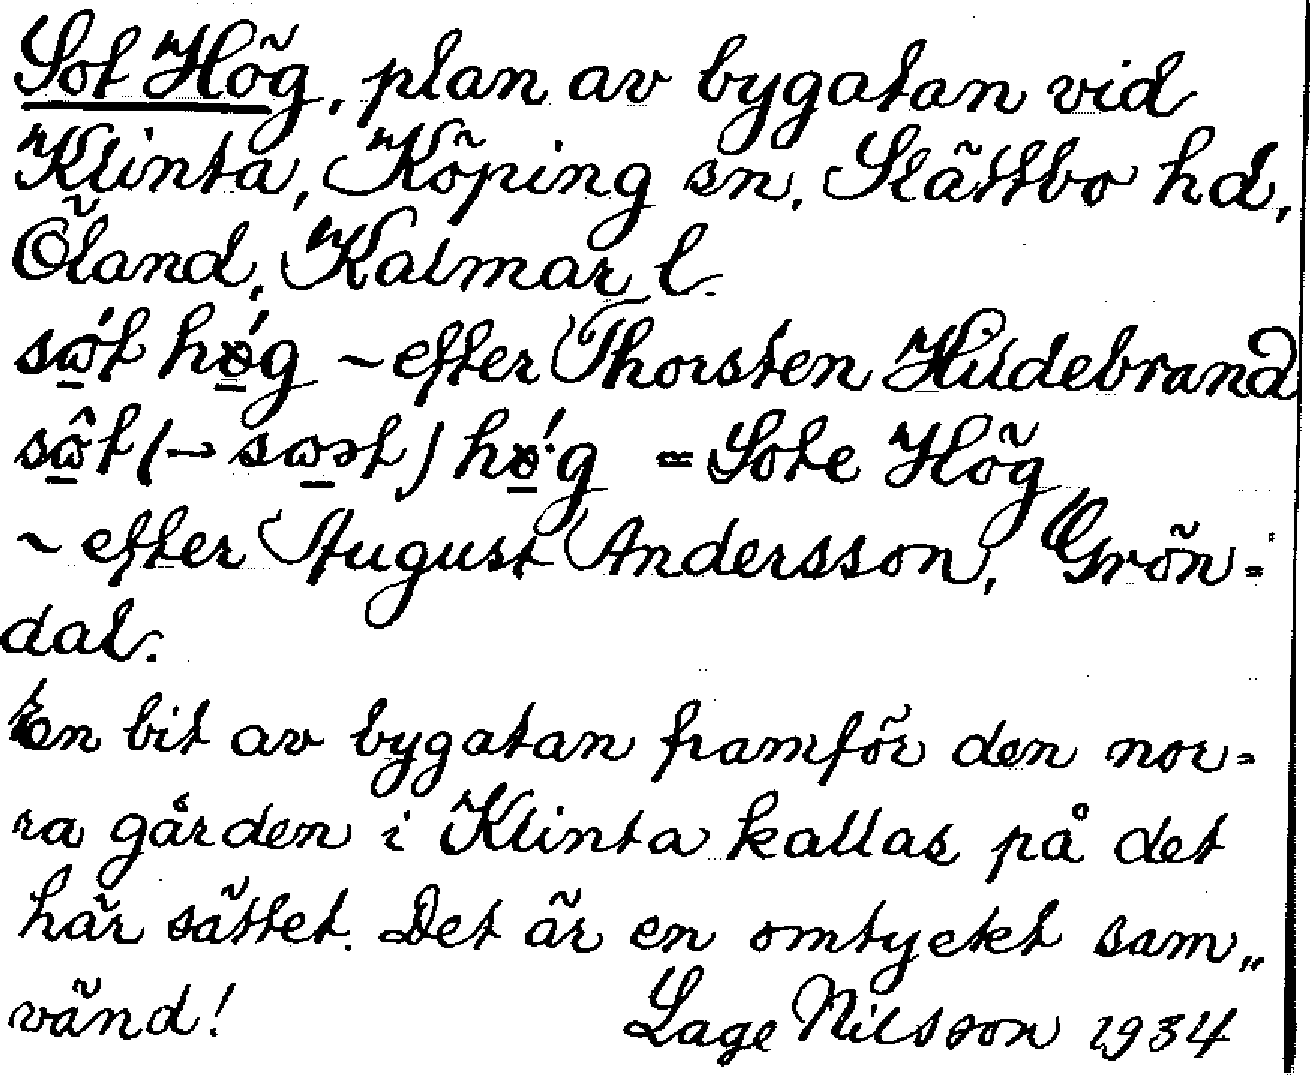 Sot Hög, plan av bygatan vid
Klinta, Köping sn, Slättbo hd,
Öland, Kalmar l.
sώ̱t hǿ̱g ~ efter Thorsten Hildebrand
sω̱̂t (→ sω̱ət) hǿ̱·g = Sote Hög
~ efter August Andersson, Grön=
dal.
En bit av bygatan framför den nor=
ra gården i Klinta kallas på det
här sättet. Det är en omtyckt sam„
vänd! Lage Nilsson 1934